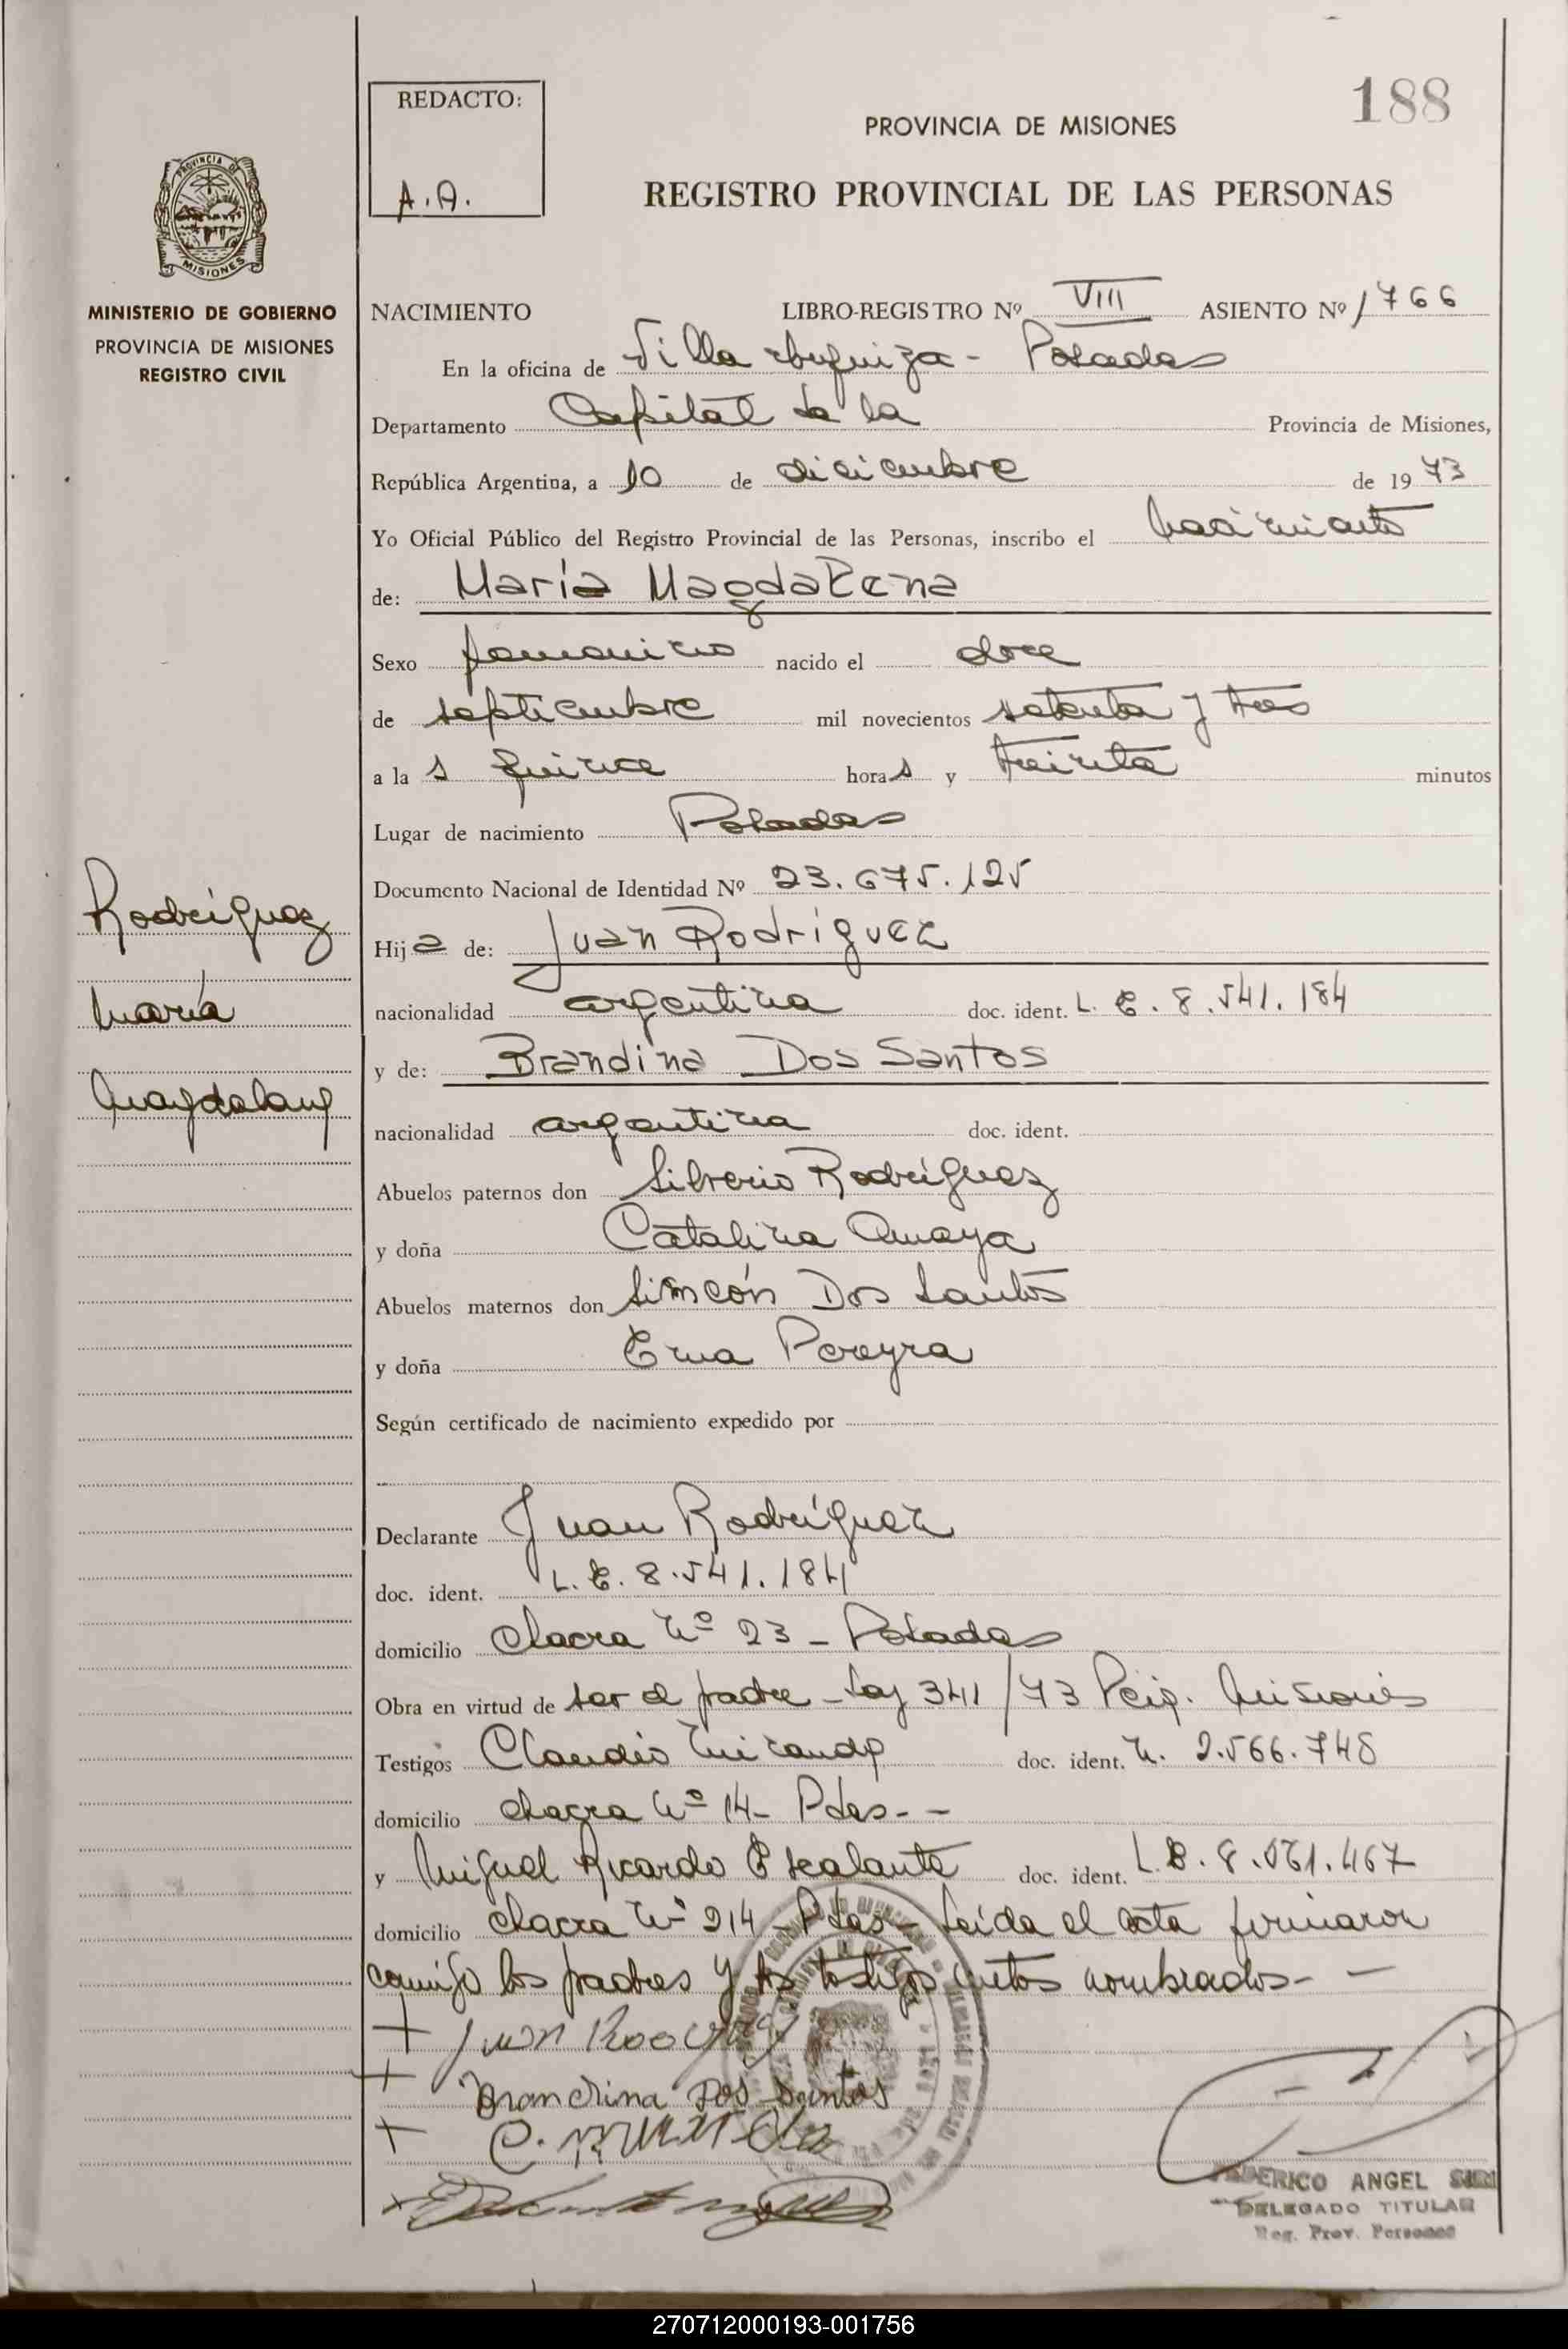 188
REDACTO:
A.A.
PROVINCIA DE MISIONES
REGISTRO PROVINCIAL DE LAS PERSONAS
PROVINCIA DE
MISIONES
MINISTERIO DE GOBIERNO
PROVINCIA DE MISIONES
REGISTRO CIVIL
NACIMIENTO LIBRO-REGISTRO Nº VIII ASIENTO Nº 1766
En la oficina de Villa Urquiza - Posadas
Departamento Capital de la Provincia de Misiones,
República Argentina, a 10 de diciembre de 1973
Yo Oficial Público del Registro Provincial de las Personas, inscribo el nacimiento
de: María Magdalena
Sexo femenino nacido el doce
de septiembre mil novecientos setenta y tres
a las quince horas y treinta minutos
Lugar de nacimiento Posadas
Documento Nacional de Identidad Nº 23.675.125
Rodríguez
María
Magdalena
Hija de: Juan Rodríguez
nacionalidad argentina doc. ident. L. E. 8.541.184
y de: Brandina Dos Santos
nacionalidad argentina doc. ident.
Abuelos paternos don Silverio Rodríguez
y doña Catalina Amaya
Abuelos maternos don Simeón Dos Santos
y doña Erna Pereyra
Según certificado de nacimiento expedido por
Declarante Juan Rodríguez
doc. ident. L. E. 8.541.184
domicilio Chacra Nº 23 - Posadas
Obra en virtud de ser el padre - Ley 341/73 Pcia. Misiones
Testigos Claudio Miranda doc. ident. 2.566.748
domicilio chacra Nº 14 - Pdas. -
y Miguel Ricardo Escalante doc. ident. L.E. 8.061.467
domicilio chacra Nº 214 - Pdas - Leída el acta firmaron
conmigo los padres y los testigos antes nombrados - -
+ Juan Rodríguez
+ Brandina Dos Santos
+ C. Miranda
FEDERICO ANGEL
DELEGADO TITULAR
Reg. Prov. Personas
270712000193-001756